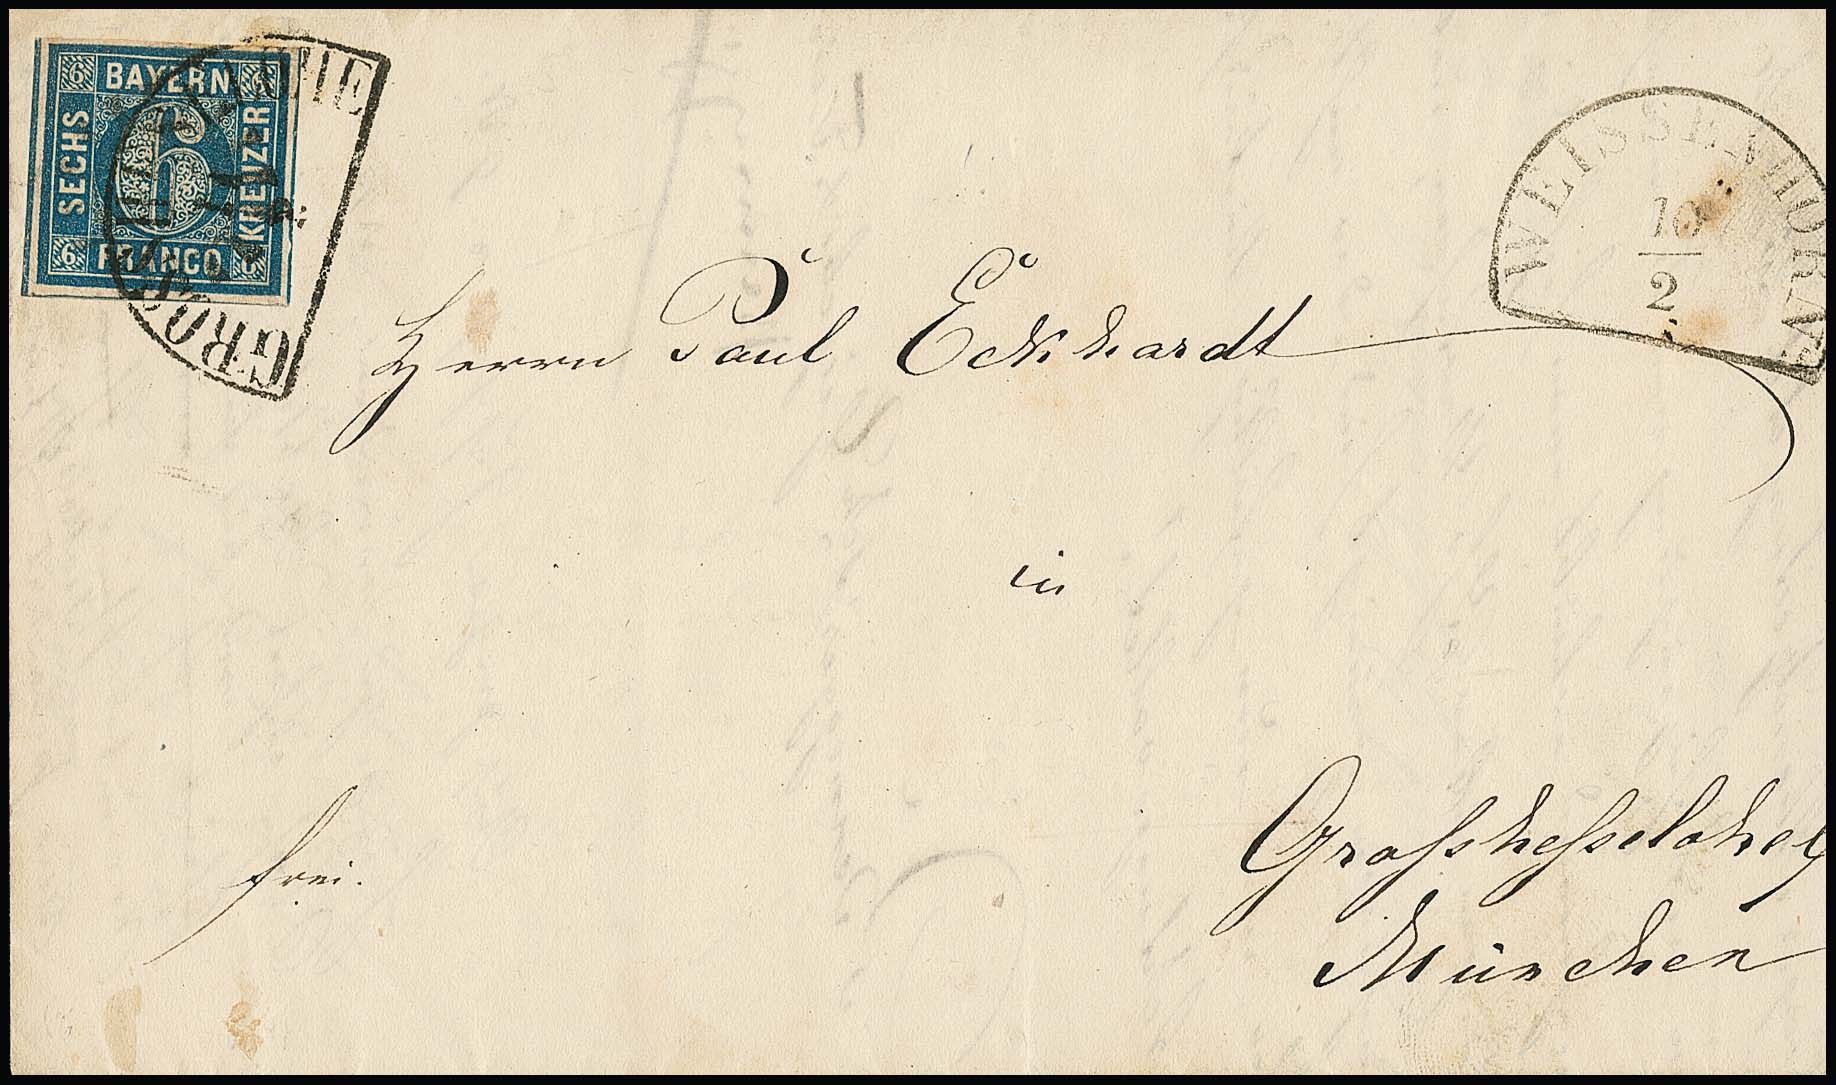 6 BAYERN 6
SECHS
6
KREUZER
6 FRANCO 6
WEISSENHORN
10
2
Herrn Paul Eckhardt
in
Großhesselohe
frei.
München